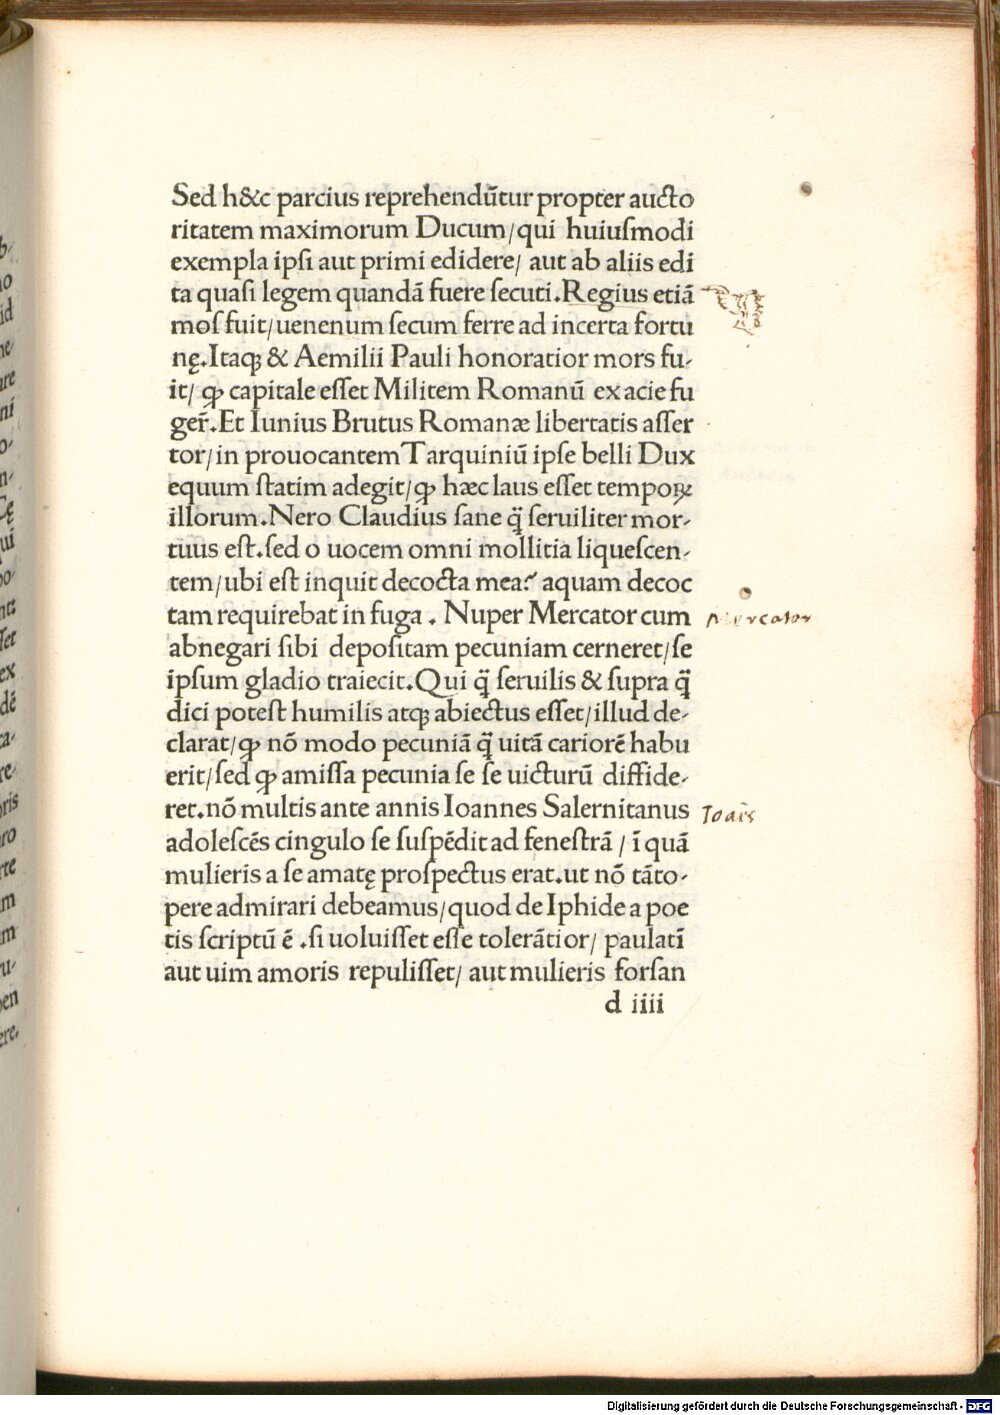 Sed h&c parcius reprehendũtur propter aucto
ritatem maximorum Ducum/qui huiuſmodi
exempla ipſi aut primi edidere/ aut ab aliis edi
ta quaſi legem quandã fuere ſecuti.Regius etiã
moſ fuit/uenenum ſecum ferre ad incerta fortu
nę.Itaqꝫ & Aemilii Pauli honoratior mors fu-
it/ ꝙ capitale eſſet Militem Romanũ ex acie fu
ger̃.Et Iunius Brutus Romanæ libertatis aſſer
tor/in prouocantem Tarquiniũ ipſe belli Dux
equum ſtatim adegit/ꝙ hæc laus eſſet tempoꝝ
illorum.Nero Claudius ſane q̃ ſeruiliter mor-
tuus eſt.ſed o uocem omni mollitia liqueſcen-
tem/ubi eſt inquit decocta mea? aquam decoc
tam requirebat in fuga . Nuper Mercator cum
Mercator
abnegari ſibi depoſitam pecuniam cerneret/ſe
ipſum gladio traiecit.Qui q̃ ſeruilis & ſupra q̃
dici poteſt humilis atqꝫ abiectus eſſet/illud de-
clarat/ꝙ nõ modo pecuniã q̃ uitã cariorẽ habu
erit/ſed ꝙ amiſſa pecunia ſe ſe uicturũ diffide-
ret.nõ multis ante annis Ioannes Salernitanus
Ioañs
adoleſcẽs cingulo ſe ſuſpẽdit ad feneſtrã / ĩ quã
mulieris a ſe amatę proſpectus erat.ut nõ tãto-
pere admirari debeamus/quod de Iphide a poe
tis ſcriptũ ẽ .ſi uoluiſſet eſſe tolerãtior/ paulatĩ
aut uim amoris repuliſſet/ aut mulieris forſan
d iiii
Digitalisierung gefördert durch die Deutsche Forschungsgemeinschaft - DFG